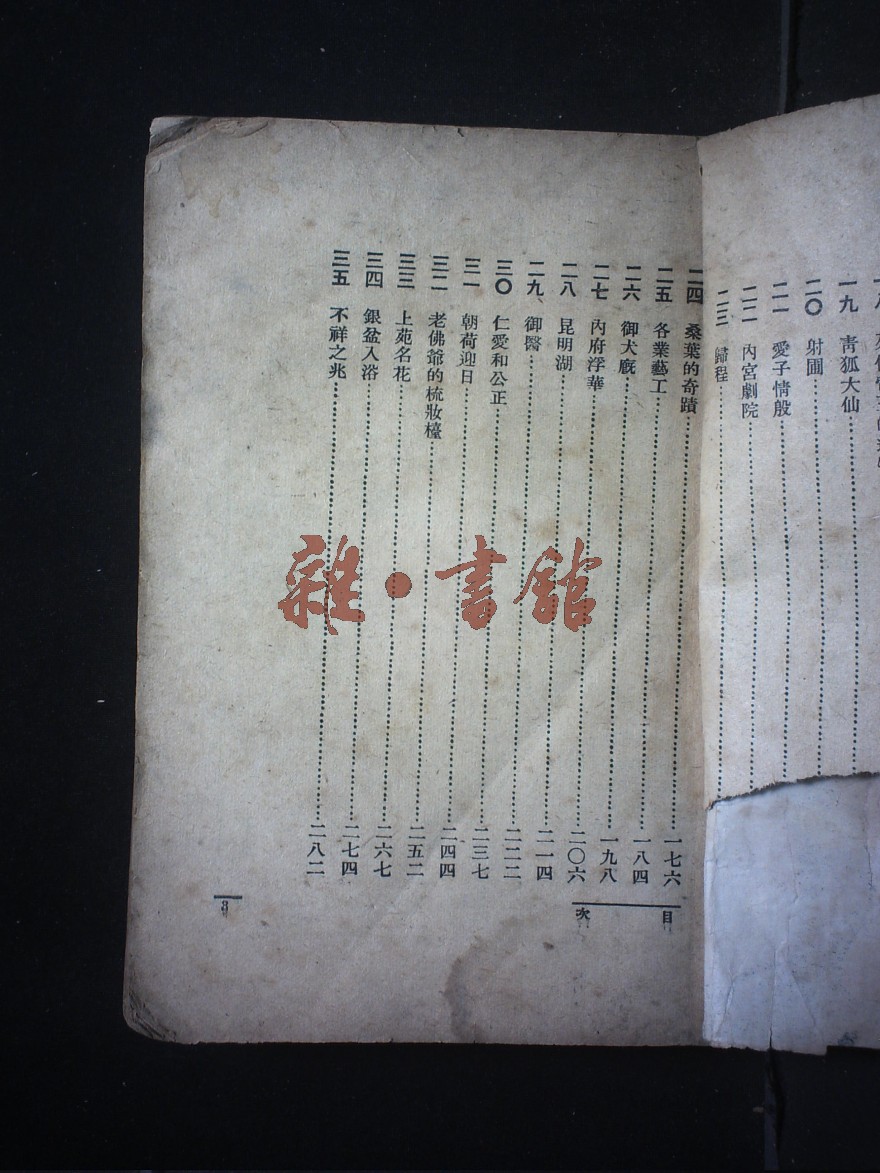 一九 青狐大仙
二〇 射圃
二一 愛子情殷
二二 內宮劇院
二三 歸程
二四 桑葉的奇蹟……一七六
二五 各業藝工……一八四
二六 御犬廐……一九八
二七 內府浮華……二〇六
二八 昆明湖……二一四
二九 御醫……二二二
三〇 仁愛和公正……二三七
三一 朝荷迎日……二四四
三二 老佛爺的梳妝檯……二五二
三三 上苑名花……二六七
三四 銀盆入浴……二七四
三五 不祥之兆……二八二
目次
3
雜·書館